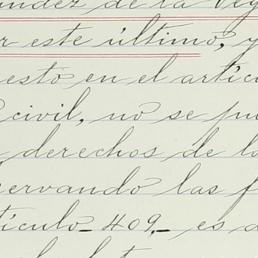 ández de la Veg
r este último, y
esto en el artíc
civil, no se pu
derechos de lo
servando las f
tículo 409 es d